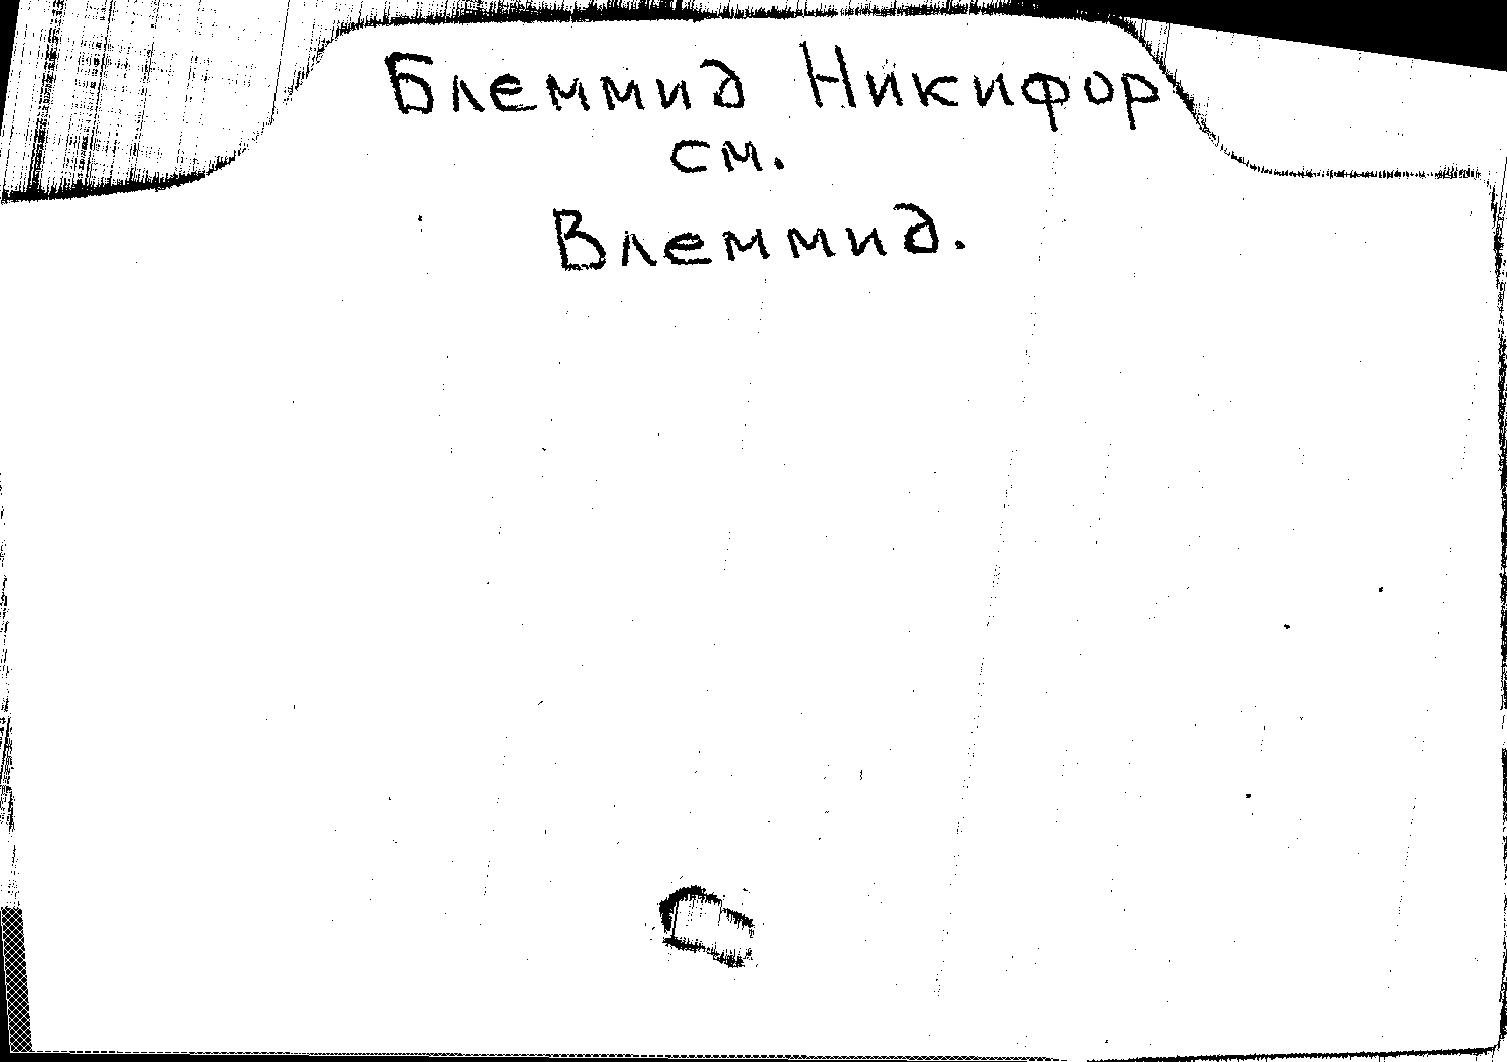 Блеммид Никифор
см.
Влеммид.